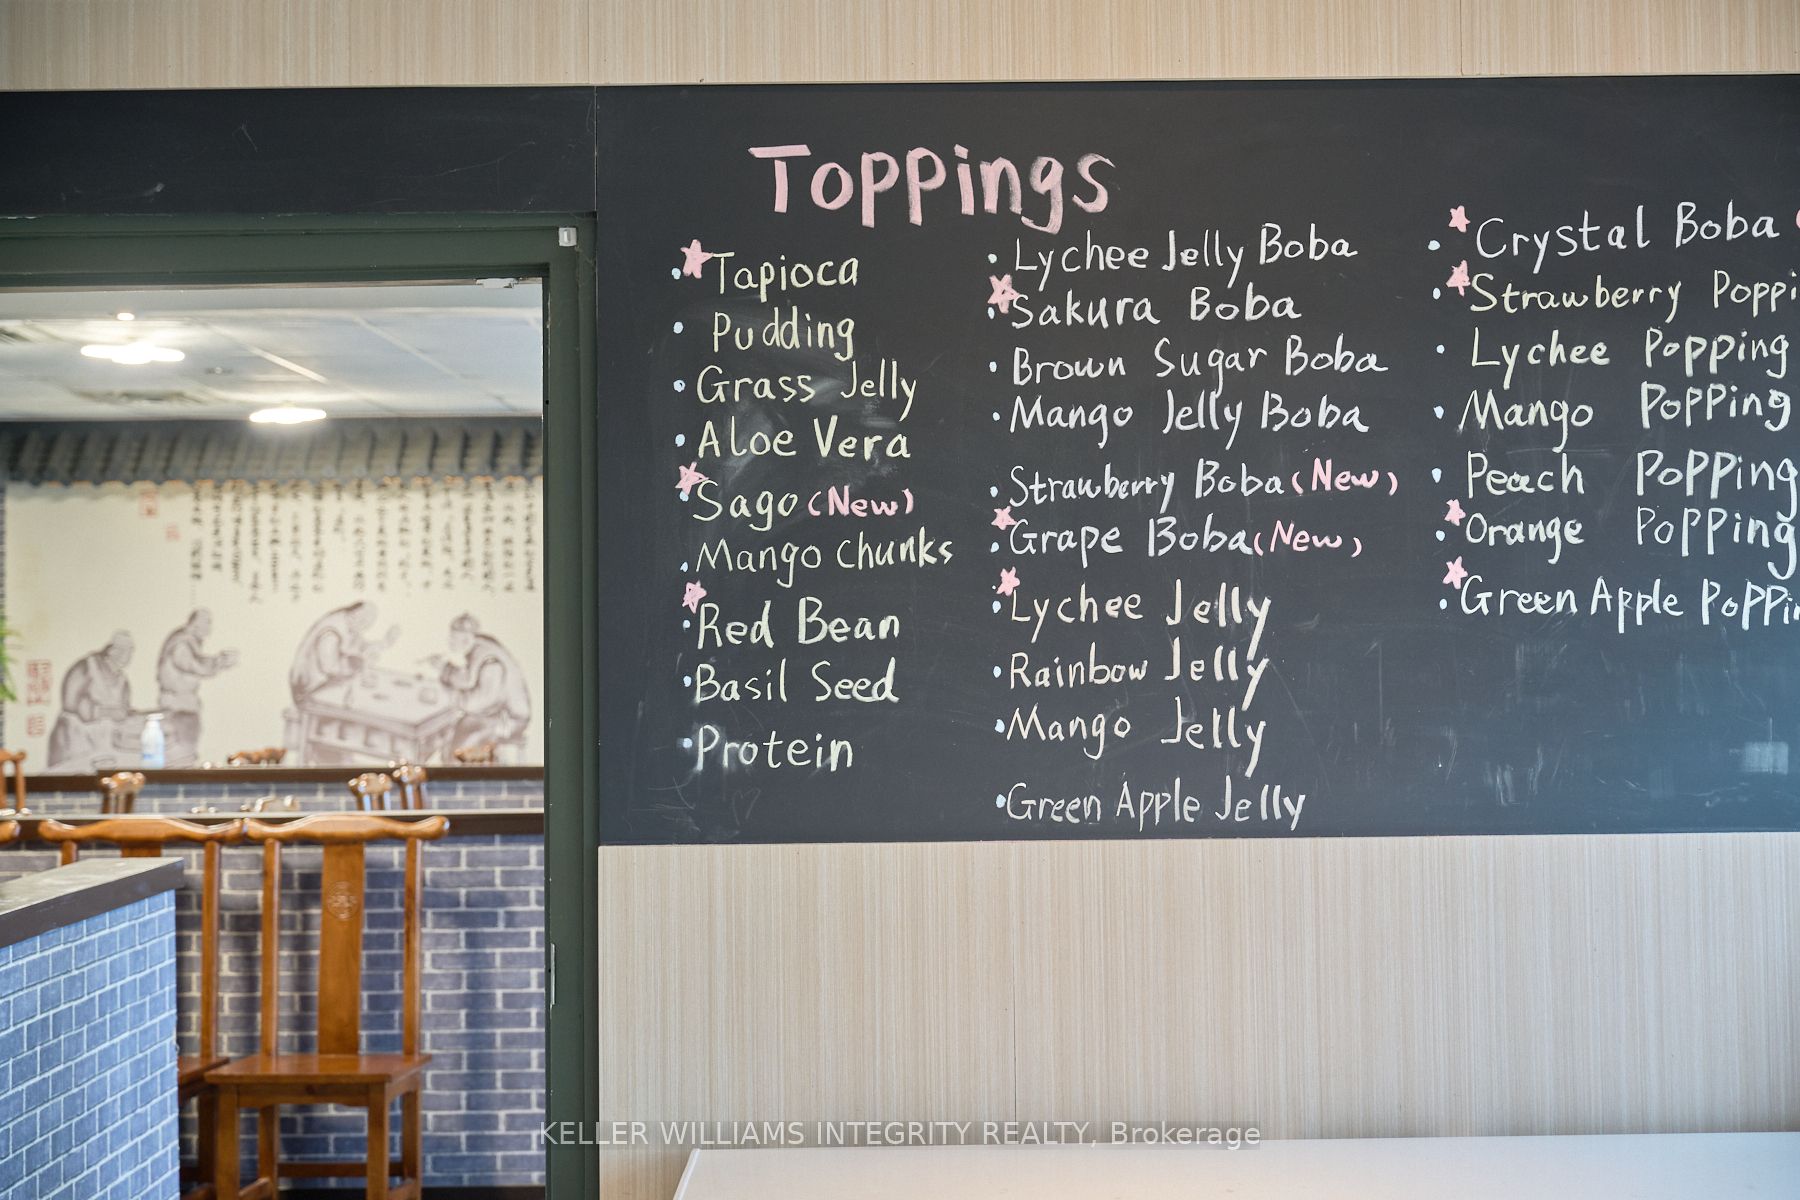 Toppings
Tapioca
Pudding
Grass Jelly
Aloe Vera
Sago (New)
Mango Chunks
Red Bean
Basil Seed
Protein
Lychee Jelly Boba
Sakura Boba
Brown Sugar Boba
Mango Jelly Boba
Strawberry Boba (New)
Grape Boba (New)
Lychee Jelly
Rainbow Jelly
Mango Jelly
Green Apple Jelly
Crystal Boba
Strawberry Poppi
Lychee Popping
Mango Popping
Peach Popping
Orange Popping
Green Apple Poppin
KELLER WILLIAMS INTEGRITY REALTY, Brokerage